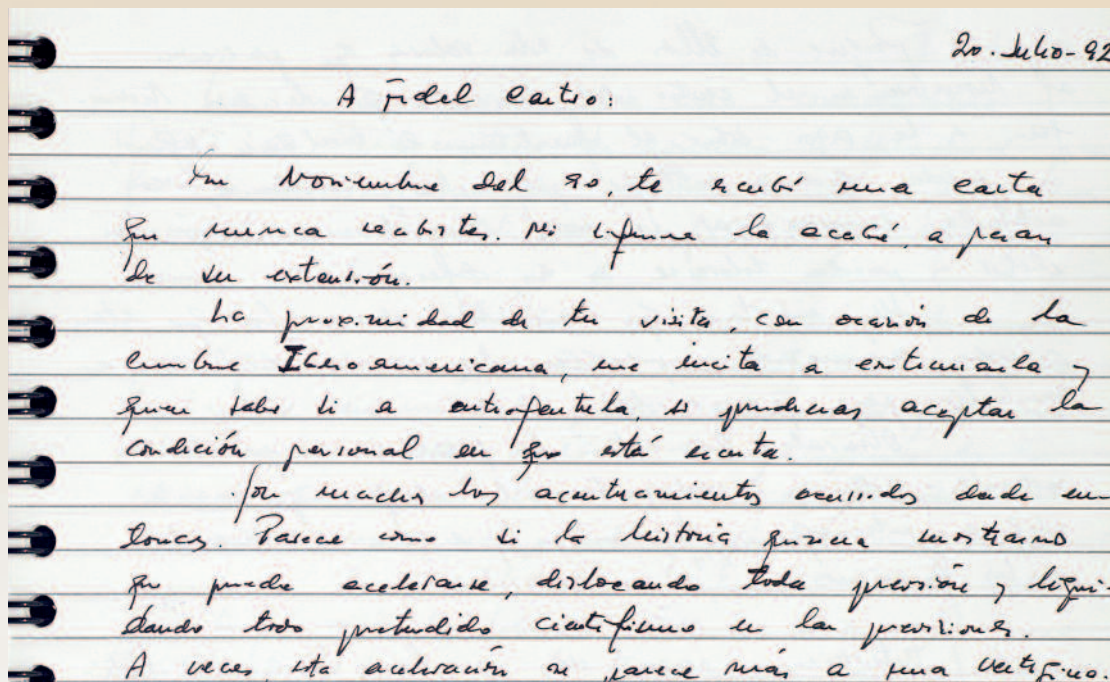 20. Julio-92
A Fidel Castro:
En Noviembre del 90, te escribí una carta
que nunca recibistes. Ni siquiera la acabé, a pesar
de su extensión.
La proximidad de tu visita, con ocasión de la
Cumbre Iberoamericana, me incita a continuarla y
quien sabe si a entregártela, si pudieras aceptar la
condición personal en que está escrita.
Son muchos los acontecimientos ocurridos desde en-
tonces. Parece como si la historia quisiera mostrarnos
que puede acelerarse, dislocando toda previsión y liqui-
dando todo pretendido cientifismo en las previsiones.
A veces, esta aceleración se parece más a una vertigino-